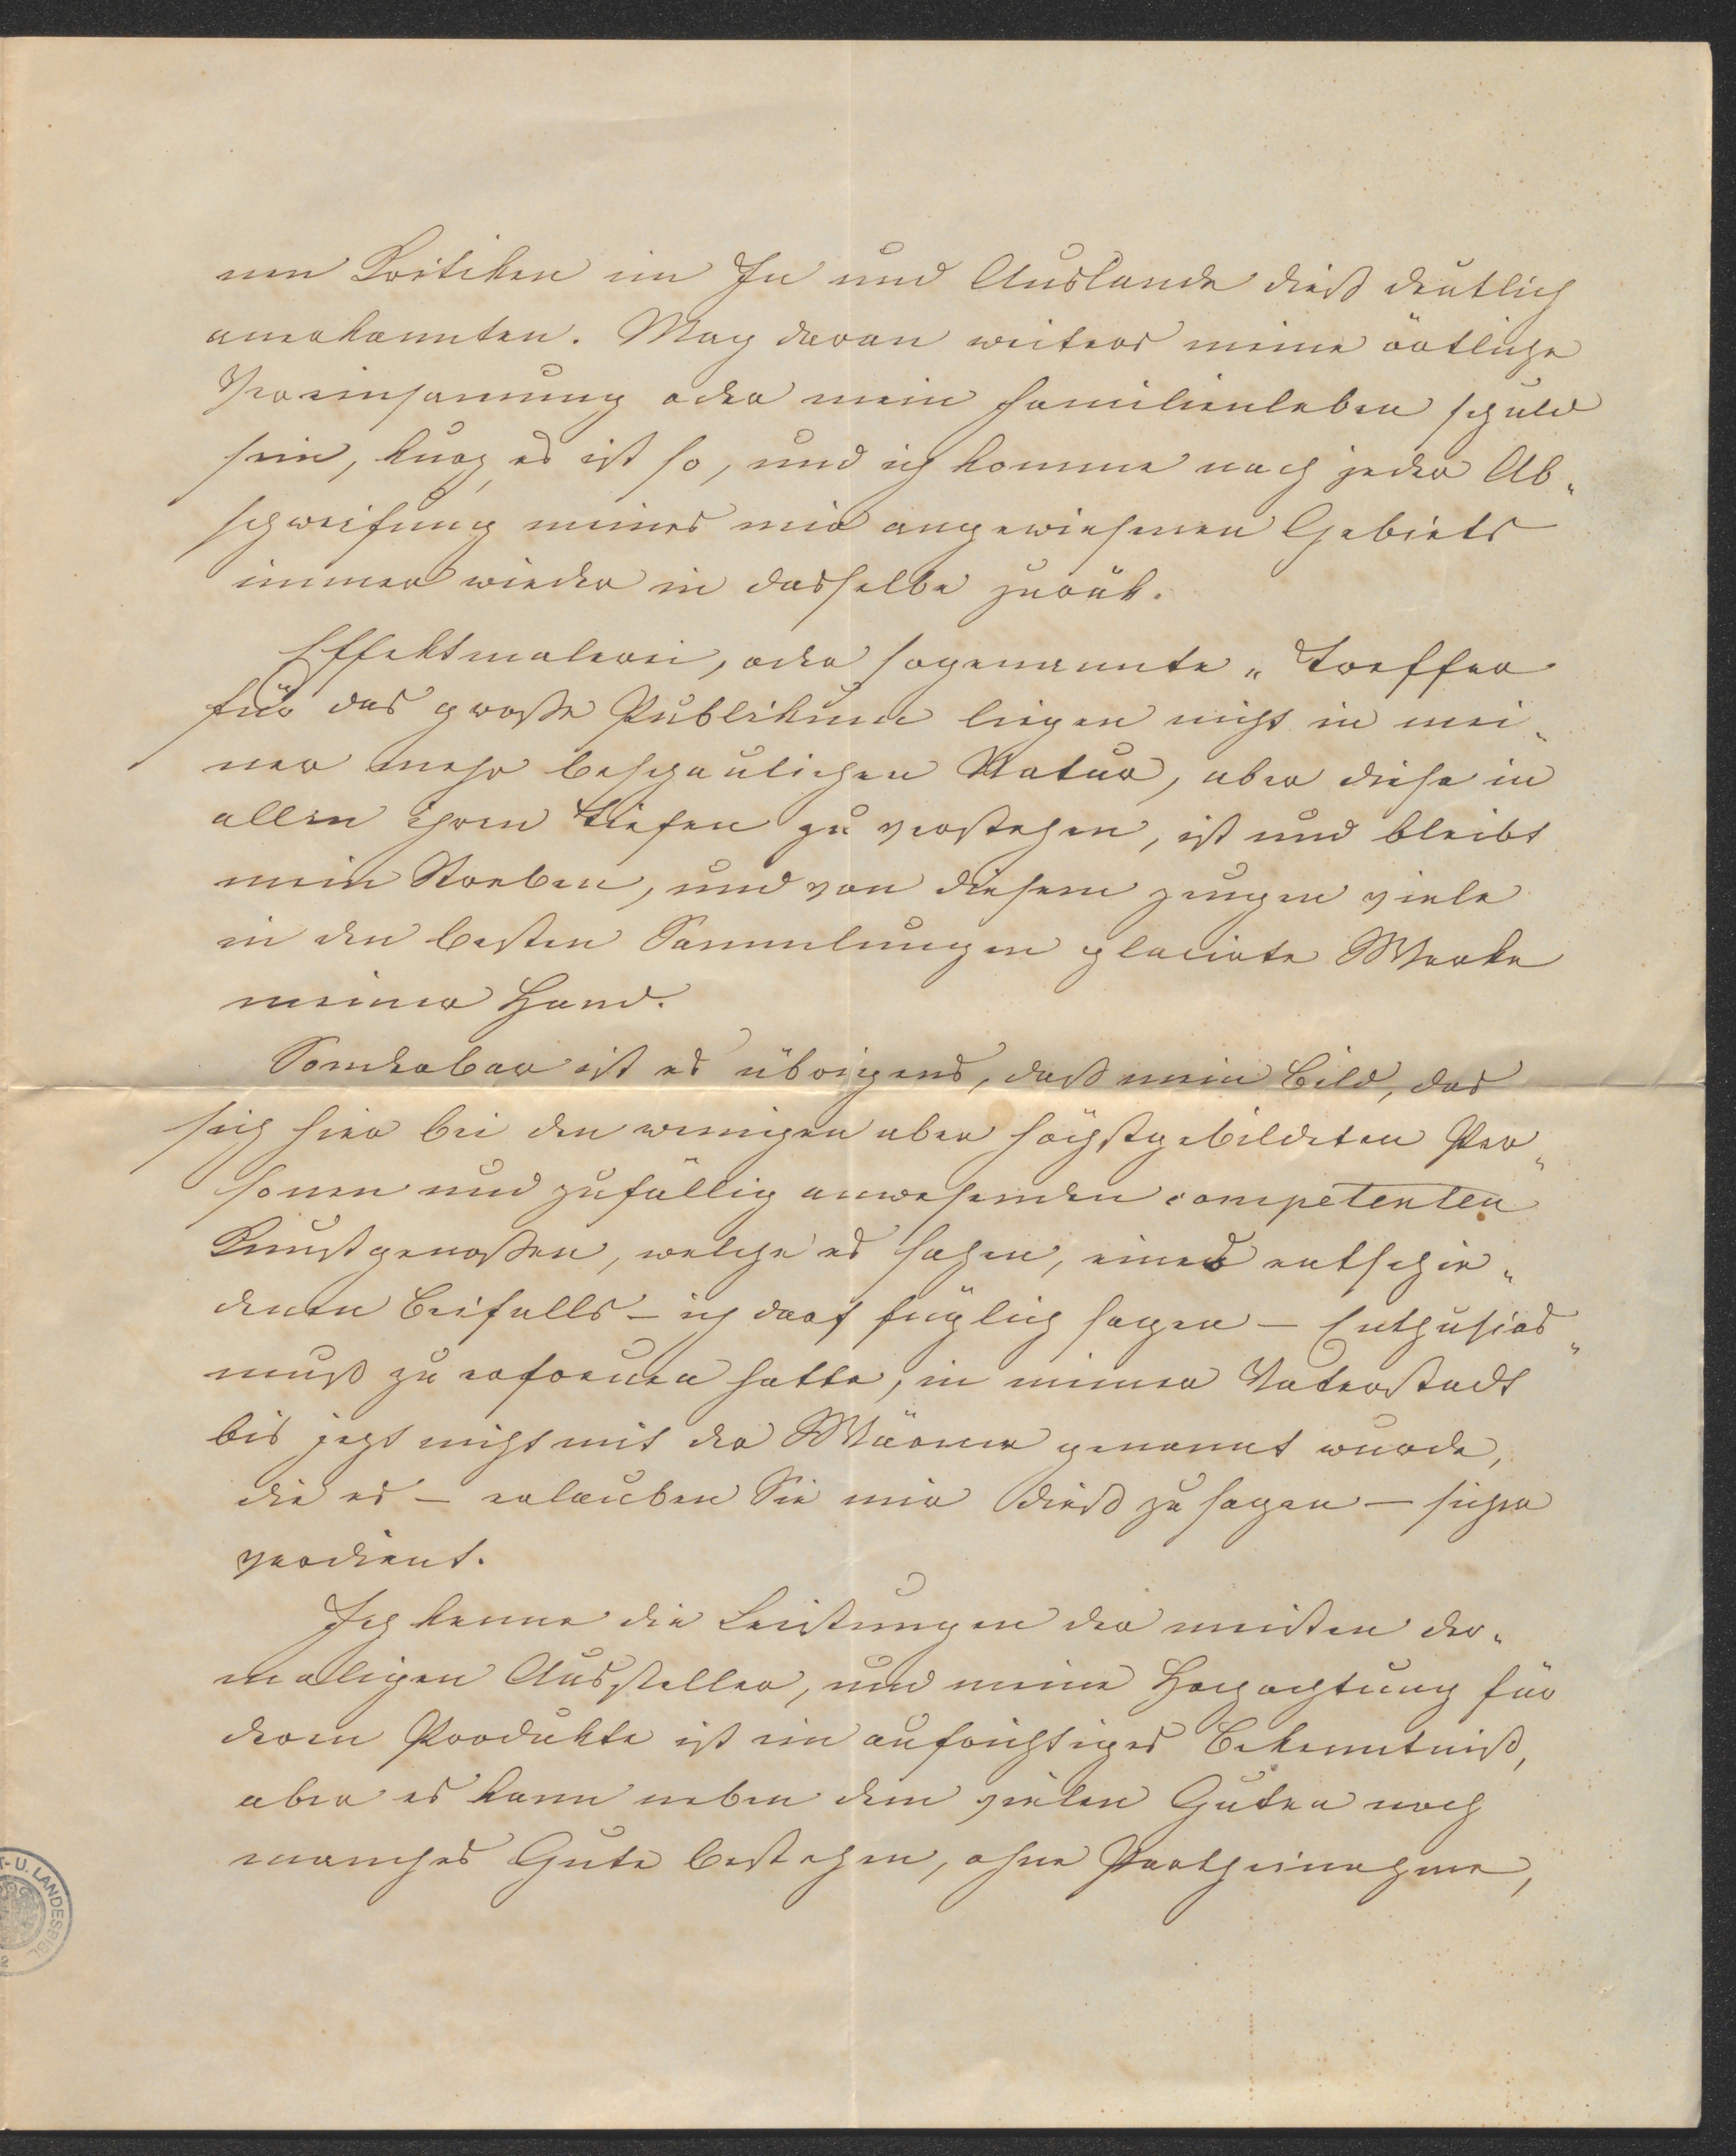 nen Kritiken im In und Auslande dieß deutlich
anerkannten. Mag daran weiters meine örtliche
Vereinsamung oder mein Familienleben schuld
sein, kurz es ist so, und ich komme nach jeder Ab„
schweifung meines mir angewiesenen Gebiets
immer wieder in dasselbe zurük.
Effektmalerei, oder sogenannte „Treffer
für das große Publikum liegen nicht in mei„
ner mehr beschaulichen Natur, aber diese in
allen ihren Tiefen zu verstehen, ist und bleibt
mein Streben, und von diesem zeugen viele
in den besten Sammlungen placirte Werke
meiner Hand.
Sonderbar ist es übrigens, daß mein Bild, das
sich hier bei den wenigen aber höchstgebildeten Per„
sonen und zufällig anwesenden competenten
Kunstgenoßen, welche es sahen, eines entschie„
denen Beifalls – ich darf füglich sagen – Enthusias„
muß zu erfreuen hatte, in meiner Vaterstadt
bis jezt nicht mit der Wärme genannt wurde,
die es – erlauben Sie mir dieß zu sagen – sicher
verdient.
Ich kenne die Leistungen der meisten der„
maligen Aussteller, und meine Hochachtung für
deren Produkte ist ein aufrichtiges Bekenntniß,
aber es kann neben dem vielen Guten noch
manches Gute bestehen, ohne Partheinahme,
T- U. LANDESBIBL